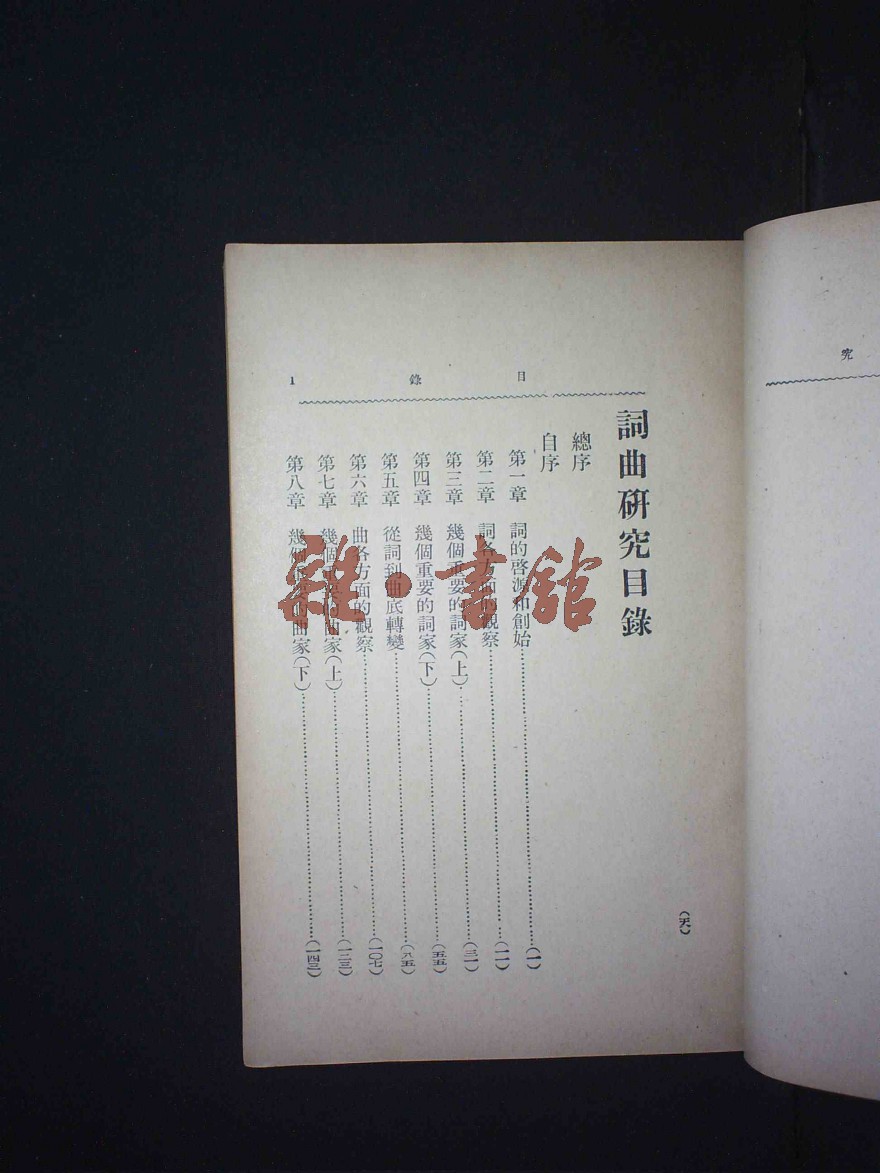 詞曲研究目錄
總序
自序
第一章 詞的啓源和創始……(一)
第二章 詞各方面的觀察……(一一)
第三章 幾個重要的詞家(上)……(三一)
第四章 幾個重要的詞家(下)……(五五)
第五章 從詞到曲底轉變……(八五)
第六章 曲各方面的觀察……(一〇七)
第七章 幾個重要的曲家(上)……(一二三)
第八章 幾個重要的曲家(下)……(一四三)
目錄
1
究
雜·書館